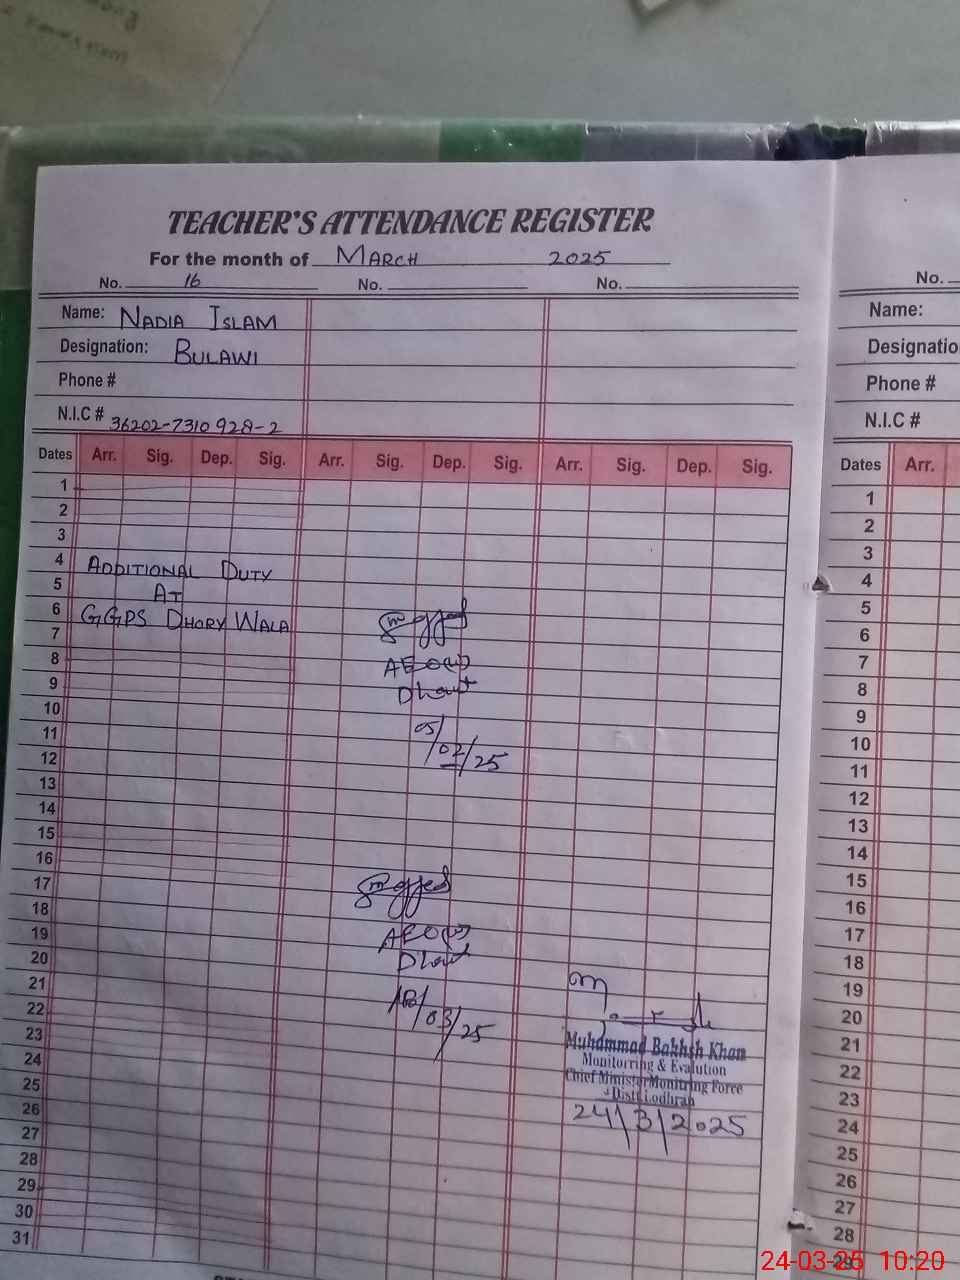 TEACHER'S ATTENDANCE REGISTER
For the month of MARCH 2025
No. 16 No. No.
Name: NADIA ISLAM
Designation: BULAWI
Phone #
N.I.C # 36202-7310928-2
Dates Arr. Sig. Dep. Sig. Arr. Sig. Dep. Sig. Arr. Sig. Dep. Sig.
1
2
3
4
ADDITIONAL DUTY
5
AT
6
GGPS DHORY WALA
7
8
AEO(W)
9
10
11
05/02/25
12
13
14
15
16
17
18
19
AEO(W)
20
21
22
/03/25
23
24
25
26
27
28
29
30
31
Muhammad Bakhsh Khan
Monitorring & Evalution
Chief Minister Monitring Force
Distt Lodhran
24/3/2025
No.
Name:
Designatio
Phone #
N.I.C #
Dates Arr.
1
2
3
4
5
6
7
8
9
10
11
12
13
14
15
16
17
18
19
20
21
22
23
24
25
26
27
28
29
24-03-25 10:20